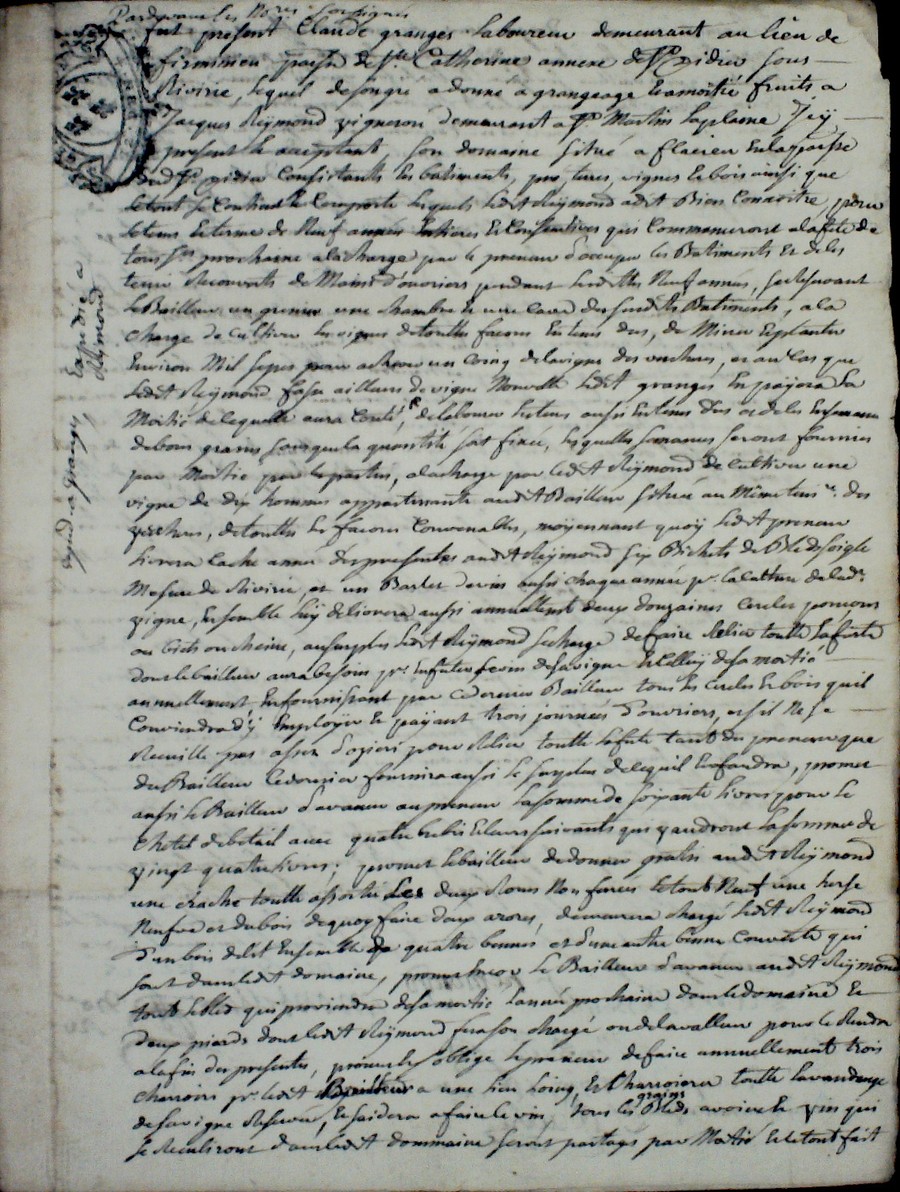 Pardevant les No.res soussignés
fut present Claude granges Laboureur demeurant au lieu de
firminieu parsse de Ste Catherine annexe de St Didier sous
Rivirie, lequel de son gré a donné a grangeage et a moitié fruits a
Jacques Reymond vigneron demeurant a St Martin Laplaine Icy
present et acceptant son domaine situé a flacieu En la parsse
dud. St Didier Consistants les batiments, pre, terres, vignes et bois ainsi que
le tout se Contient et Comporte lesquels ledit Reymond a dit Bien Connoitre, pour
le tems et terme de Neuf années Entieres et Consecutives qui Commanceront a la fete de
tous Sts prochaine a la charge par le preneur d'occuper les Batiments et de les
tenir Recouverts de Mains d'ouvriers pendant lesdittes Neuf années, se Reservant
le Bailleur un grenier une chambre et une Cave desdits Batiments, a la
charge de Cultiver les vignes de touttes facons En tems dus, de Miner Et planter
Environ Mil Seps pour achever un Coing de la vigne des verchers, et au Cas que
ledit Reymond fasse ailleurs de vigne Nouvelle ledit granges En payera la
Moitié de laquelle aura Couté, de labourer les terres aussi En tems dus et de les Ensemencer
de bons grains sans que la quantité soit fixée, lesquelles semances seront fournies
par Moitié par les parties, a la charge par ledit Reymond de Cultiver une
vigne de dix hommes appartenante audit Bailleur située au Même des
verchers, de touttes les facons Convenables, moyennant quoy ledit preneur
livrera Cache année des presentes audit Reymond six Bichets de Blé de soigle
Mesure de Rivirie, et un Barlet de vin aussi chaque année pr. la Culture de lade
vigne, Ensemble luy delivrera aussi annuellemt deux douzaines Cercles
ou chesne, au surplus ledit Reymond se charge de faire Relier toutte la futte
dont le bailleur aura besoin pr. Enfuter le vin de sa vigne Et Celluy de sa moitié
annuellement, En fournissant par Ce dernier Bailleur tous les Cercles Et bois qu'il
Conviendra d'y Employer Et payant trois journées d'ouvriers, et s'il Ne se
Reuille pas assez d'oziers pour Relier toutte la futte tant du preneur que
du Bailleur Ce dernier fournira aussi le surplus de lequil En faudra, promet
aussi le Bailleur d'avancer au preneur la somme de soixante livres pour le
Chetel de betail avec quatre brebis Et leurs suivants qui vaudront la somme de
vingt quatre livres; promet le bailleur de donner gratis audit Reymond
une toutte assortie Les deux Roues Non farrées le tout Neuf une herse
Neufve et du bois de quoy faire deux arores, demeurera chargé ledit Reymond
d'un bois de lit Ensemble de quatre bennes et d'une autre benne Couverte qui
sont dans ledit domaine, promet Encor le Bailleur d'avancer audit Reymond
tout le bled qui proviendra de sa moitié l'année prochaine dans le domaine Et
deux piards dont ledit Reymond sera son chargé ou de la valleur pour le Rendre
a la fin des presentes, promet et oblige le preneur de faire annuellement trois
Charrois pr. ledit Bailleur a une lieu loing, Et Charroiera toutte la vandange
de sa vigne Reservée, Et s'aidera a faire le vin, tous les grains Bleds avoine Et vin qui
se Reculiront dans ledit dommaine seront partagés par Moitié Et le tout fait
Expedié a
Reymond
expedié a granges